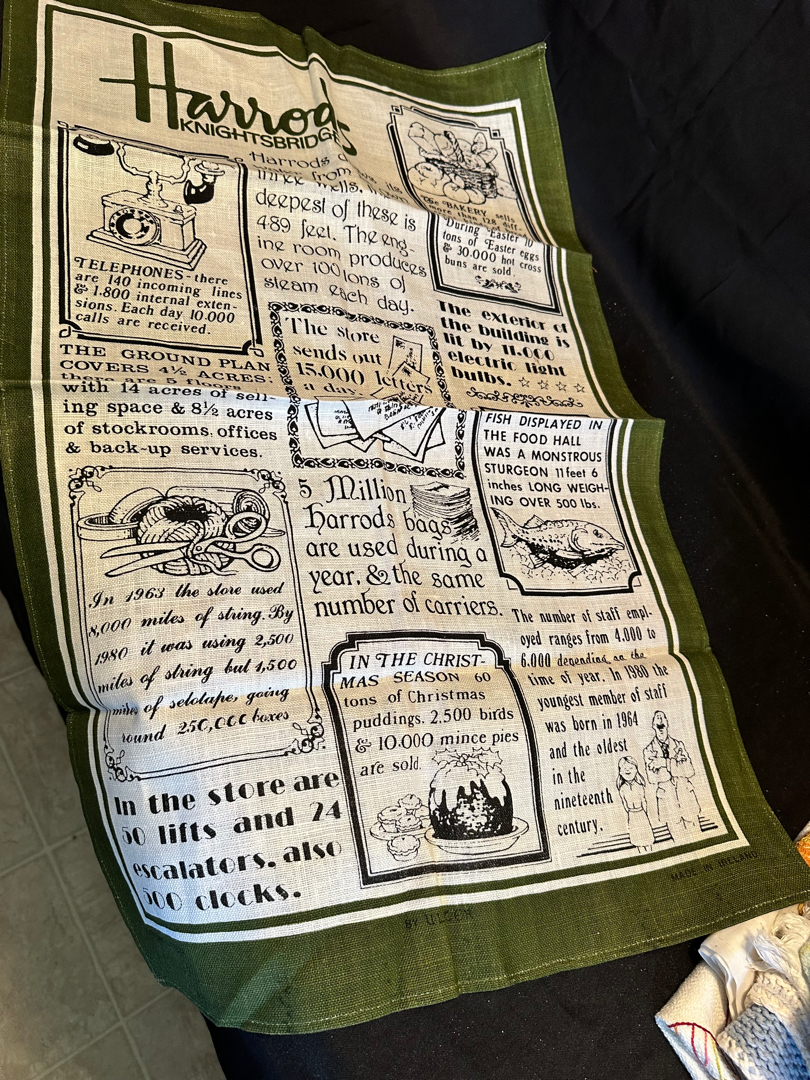 Harrods
KNIGHTSBRIDGE
Harrods
three from wells,
deepest of these is
489 feet. The eng-
ine room produces
over 100 tons of
steam each day.
The BAKERY sells
more than 128 diff-
During Easter 10
tons of Easter eggs
& 30.000 hot cross
buns are sold.
TELEPHONES - there
are 140 incoming lines
& 1.800 internal exten-
sions. Each day 10.000
calls are received.
The exterior of
the building is
lit by 11.000
electric light
bulbs.
The store
sends out
15.000 letters
a day.
THE GROUND PLAN
COVERS 4½ ACRES:
there are 5 floors
with 14 acres of sell-
ing space & 8½ acres
of stockrooms, offices
& back-up services.
FISH DISPLAYED IN
THE FOOD HALL
WAS A MONSTROUS
STURGEON 11 feet 6
inches LONG WEIGH-
ING OVER 500 lbs.
5 Million
Harrods bags
are used during a
year, & the same
number of carriers.
In 1963 the store used
8,000 miles of string. By
1980 it was using 2,500
miles of string but 1,500
miles of selotape, going
round 250,000 boxes
The number of staff empl-
oyed ranges from 4.000 to
6.000 depending on the
time of year. In 1980 the
youngest member of staff
was born in 1964
and the oldest
in the
nineteenth
century.
IN THE CHRIST-
MAS SEASON 60
tons of Christmas
puddings. 2.500 birds
& 10.000 mince pies
are sold.
In the store are
50 lifts and 24
escalators, also
500 clocks.
MADE IN IRELAND
BY ULSTER